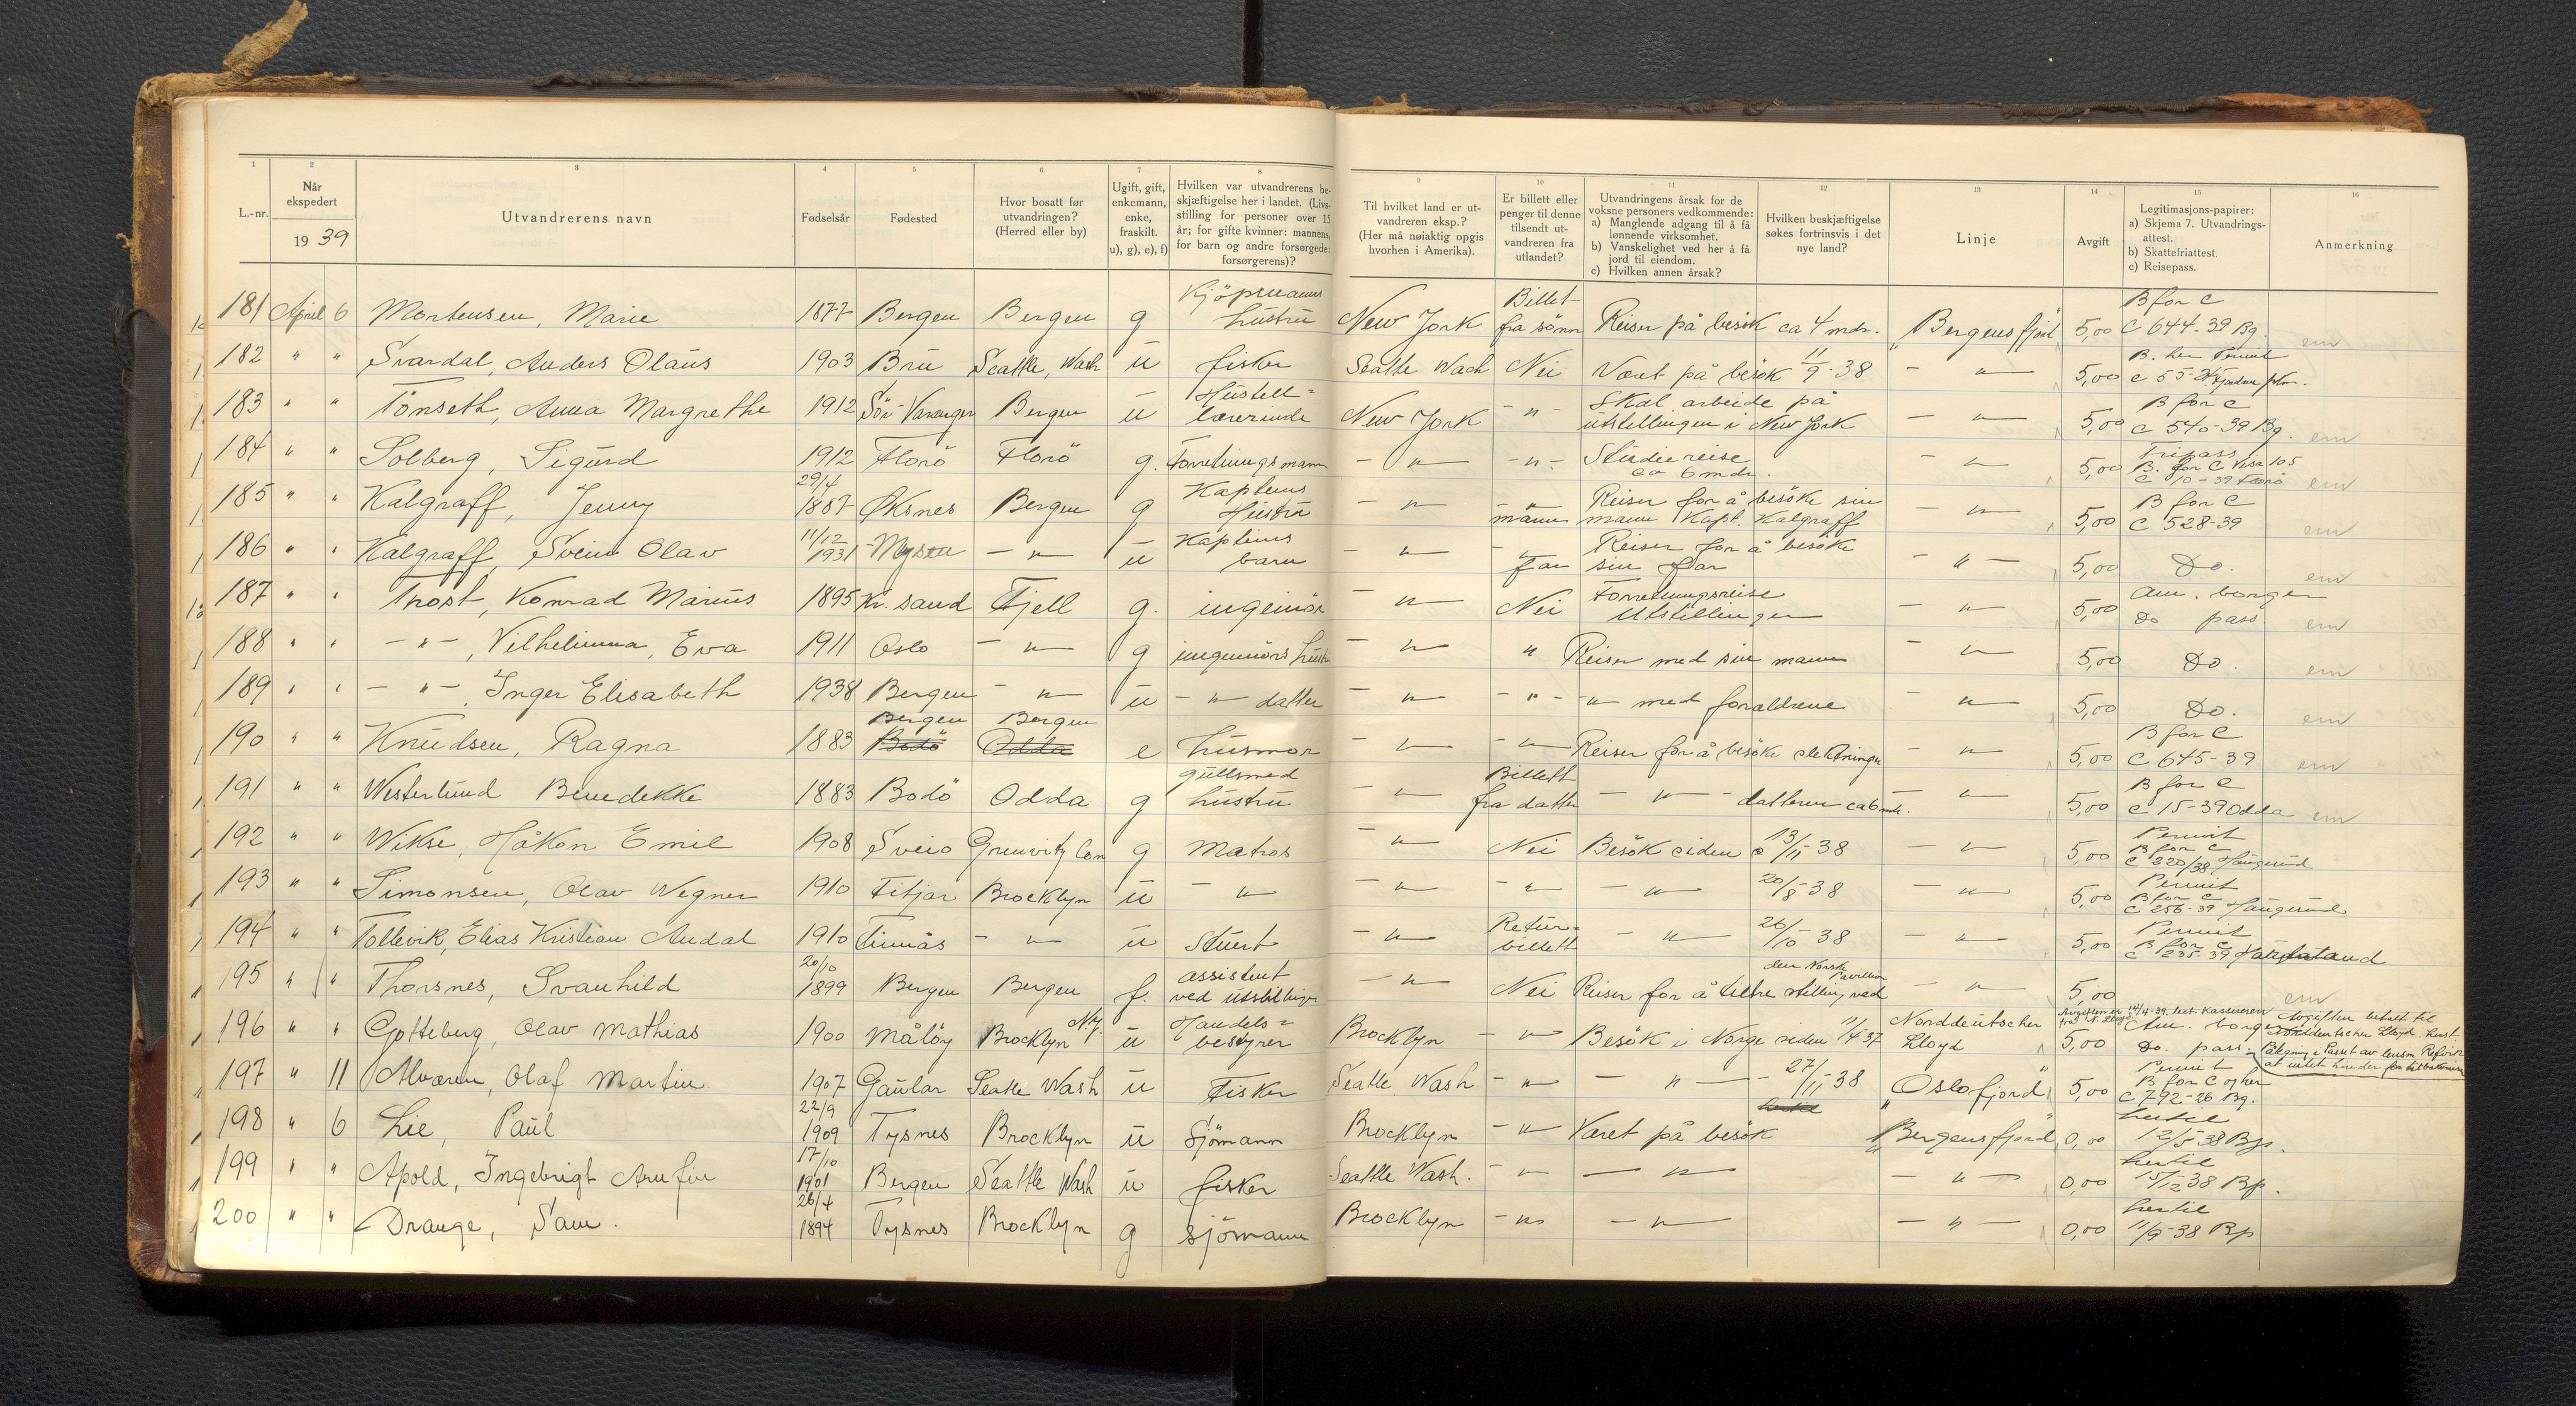 1 2 3 4 5 6 7 8 9 10 11 12 13 14 15 16
L.-nr.
Når ekspedert 1939
Utvandrerens navn
Fødselsår
Fødested
Hvor bosatt før utvandringen? (Herred eller by)
Ugift, gift, enkemann, enke, fraskilt. u), g), e), f)
Hvilken var utvandrerens beskjæftigelse her i landet. (Livsstilling for personer over 15 år; for gifte kvinner: mannens, for barn og andre forsørgede: forsørgerens)?
Til hvilket land er utvandreren eksp.? (Her må nøiaktig opgis hvorhen i Amerika).
Er billett eller penger til denne tilsendt utvandreren fra utlandet?
Utvandringens årsak for de voksne personers vedkommende: a) Manglende adgang til å få lønnende virksomhet. b) Vanskelighet ved her å få jord til eiendom. c) Hvilken annen årsak?
Hvilken beskjæftigelse søkes fortrinsvis i det nye land?
Linje
Avgift
Legitimasjons-papirer: a) Skjema 7. Utvandringsattest. b) Skattefriattest. c) Reisepass.
Anmerkning
181 April 6 Mortensen, Marie 1877 Bergen Bergen g Kjöpmanns hustru New York Billet fra sönn Reiser på besök ca 4 mdr. "Bergensfjord" 5,00 B for C C 644-39 Bg. em
182 " " Svardal, Anders Olaus 1903 Bru Seattle, Wash u fisker Seattle Wash Nei Været på besök 11/9-38 - " - 5,00
183 " " Tönseth, Anna Margrethe 1912 Sör-Varanger Bergen u Hustell= lærerinde New York - " - Skal arbeide på utstillingen i New York - " - 5,00 B for C C 540-39 Bg. em
184 " " Solberg, Sigurd 1912 Florö Florö g. Forretningsmann - " - - " - Studiereise ca 6 mdr. - " - 5,00 B. for C Visa 105 em
185 " " Kalgraff, Jenny 29/4 1887 Øksnes Bergen g Kapteins Hustru - " - " mann Reiser for å besöke sin mann Kapt. Kalgraff - " - 5,00 B for C C 528-39 em
186 " " Kalgraff, Svein Olav 11/12 1931 - " - u Kapteins barn - " - - " far Reiser for å besöke sin far - " - 5,00 Do. em
187 " " Trost, Konrad Marius 1895 Kr. sand Fjell g. ingeniör - " - Nei Forretningsreise Utstillingen - " - 5,00 Am. borger Do pass em
188 " " - " -, Vilhelmina, Eva 1911 Oslo - " - g ingeniörs hustru - " - " Reiser med sin mann - " - 5,00 Do. em
189 " " - " -, Inger Elisabeth 1938 Bergen - " - u - " - datter - " - - " - - " - med foraldrene - " - 5,00 Do. em
190 " " Knudsen, Ragna 1883 Bergen Bodö Bergen Odda e husmor - " - - " - Reiser for å besöke slektninger - " - 5,00 B for C C 645-39 em
191 " " Westerlund Benedekke 1883 Bodö Odda g gullsmed hustru - " - Billett fra datter - " - datteren ca 6 mdr. - " - 5,00 B for C C 15-39 Odda em
192 " " Wikse, Håkon Emil 1908 Sveio g Matros - " - Nei Besök siden 13/11-38 - " - 5,00 Permit B for C C 220/38 Haugesund
193 " " Simonsen, Olav Wegner 1910 Fitjar Brocklyn u - " - - " - - " - - " - 20/8-38 - " - 5,00 Permit B for C C 256-39 Haugesund
194 " " Tollevik, Elias Kristian Andal 1910 Finnås - " - u Stuert - " - Retur= billett - " - 26/10-38 - " - 5,00 Permit B for C C 235-39
195 " " Thorsnes, Svanhild 20/10 1899 Bergen Bergen f. assistent ved utstillingen - " - Nei Reiser for å tiltre stilling ved den Norske Pavillion - " - 5,00 em
196 " " Gotteberg, Olav Mathias 1900 Målöy Brocklyn N.y. u Handels= bestyrer Brocklyn - " - Besök i Norge siden 11/4-37 Norddeutscher Lloyd 5,00 Am. borger Do. pass. Avgiften betalt til Norddeutscher Lloyd
197 " 11 Alværen, Olaf Martin 1907 Gaular Seatle Wash u Fisker Seatle Wash - " - - " - 27/11-38 "Oslofjord" 5,00 Permit B for C og her C 792-26 Bg.
198 " 6 Lie, Paul 22/9 1909 Tysnes Brocklyn u Sjömann Brocklyn - " - Været på besök hertil "Bergensfjord" 0,00 hertil 12/5-38 Bp.
199 " " Apold, Ingebrigt Arnfin 17/10 1901 Bergen Seattle Wash u fisker Seattle Wash. - " - - " - - " - 0,00 hertil 15/12 38 Bp.
200 " " Drange, Sam. 26/4 1894 Tysnes Brocklyn g sjömann Brocklyn - " - - " - - " - 0,00 hertil 11/9-38 Bp